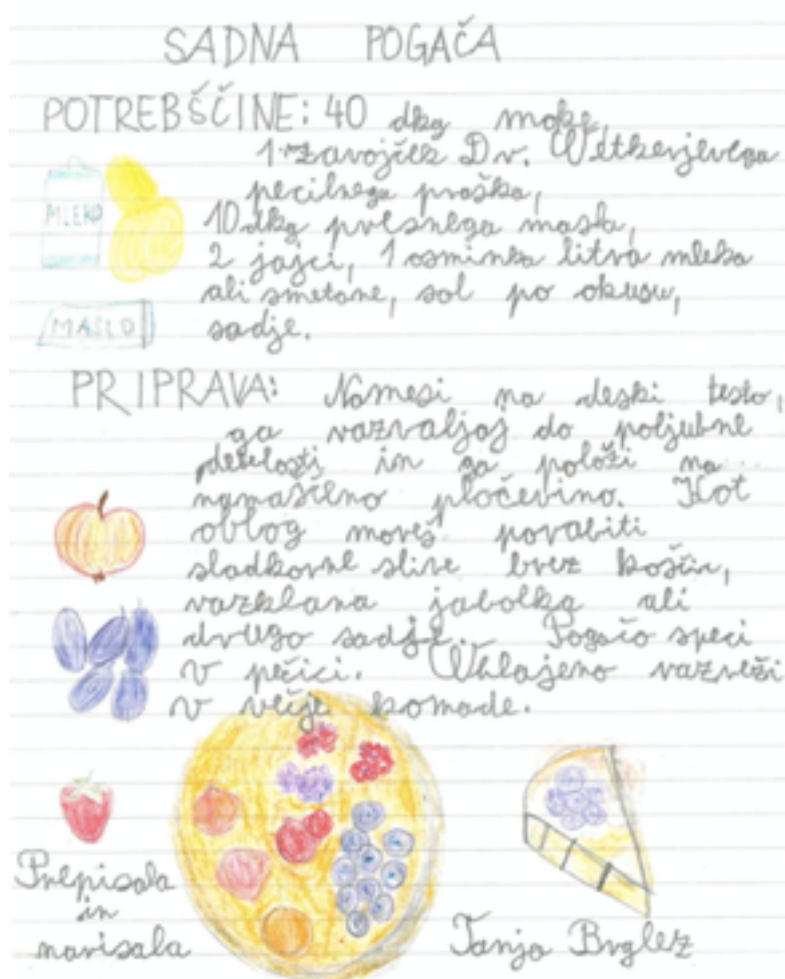 SADNA POGAČA
POTREBŠČINE: 40 dkg moke,
1 zavojček Dr. Oetkerjevega
pecilnega praška,
10 dkg presnega masla,
2 jajci, 1 osminka litra mleka
ali smetane, sol po okusu,
sadje.
MLEKO
MASLO
PRIPRAVA: Namesi na deski testo,
ga razvaljaj do poljubne
debelosti in ga položi na
namaščeno pločevino. Kot
oblog moreš porabiti
sladkorne slive brez koščic,
razklana jabolka ali
drugo sadje. Pogačo speci
v pečici. Ohlajeno razreži
v večje komade.
Prepisala
in
narisala
Tanja Brglez